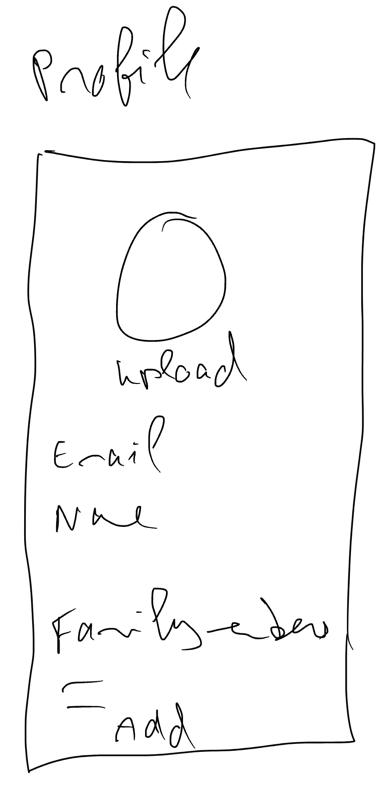 Profile
upload
Email
Name
Family members
Add